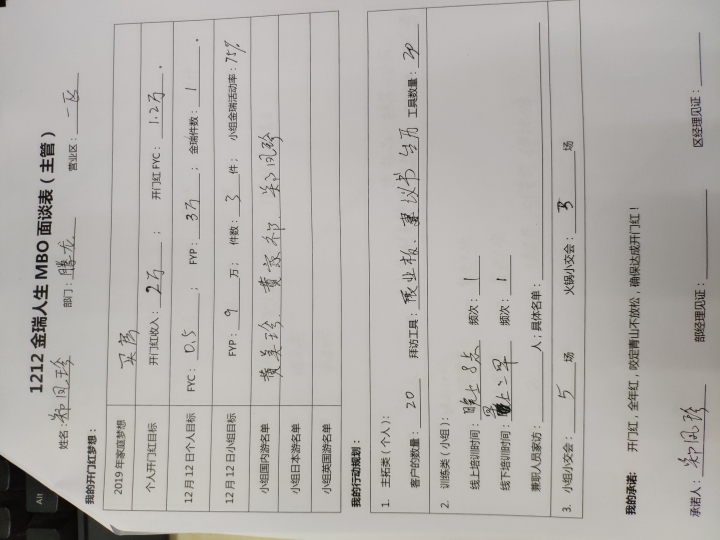 1212金瑞人生MBO面谈表（主管）
姓名：郑凤珍 部门：腾龙 营业区：一区
我的开门红梦想：
2019年家庭梦想 买房
个人开门红目标 开门红收入：2万； 开门红FYC：1.2万。
12月12日个人目标 FYC：0.5； FYP：3万； 金瑞件数：1。
12月12日小组目标 FYP：9万； 件数：3件； 小组金瑞活动率：75%
小组国内游名单 黄美珍、黄家郗、郑凤珍
小组日本游名单
小组英国游名单
我的行动规划：
1. 主拓类（个人）：
客户的数量：20 拜访工具：展业板、建议书 台历 工具数量：20
2. 训练类（小组）：
线上培训时间：晚上8点 频次：1
线下培训时间：早上二早 频次：1
兼职人员家访：人；具体名单：
3. 小组小交会：5场 火锅小交会：3场
我的承诺： 开门红，全年红，咬定青山不放松，确保达成开门红！
承诺人：郑凤珍 部经理见证： 区经理见证：
Alt